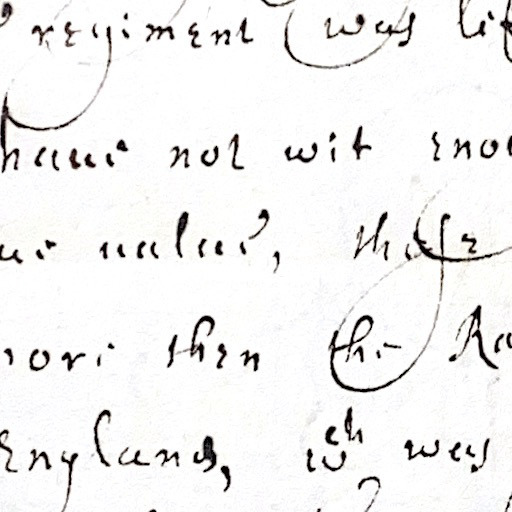 regiment was
haue not wit
ualue, these
then the
England, wch was